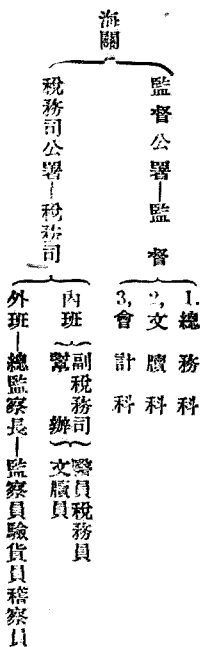 海關
監督公署—監督
1.總務科
2,文牘科
3,會計科
稅務司公署—稅務司
內班
副稅務司
幫辦
醫員稅務員
文牘員
外班—總監察長—監察員驗貨員稽察員